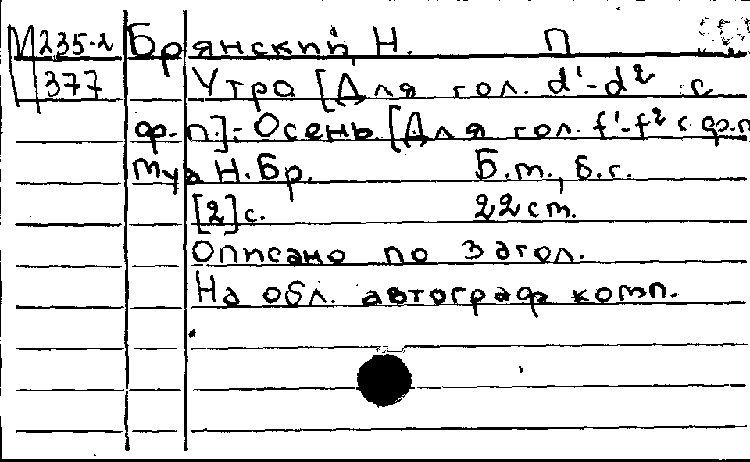 М 235-2 Брянский, Н. П
377 Утро [Для гол. d¹-d² с
ф.-п.].- Осень [Для гол. f¹-f² с ф.п
Муз Н. Бр. Б.м., б.г.
[2] с. 22 ст.
Описано по загол.
На обл. автограф комп.